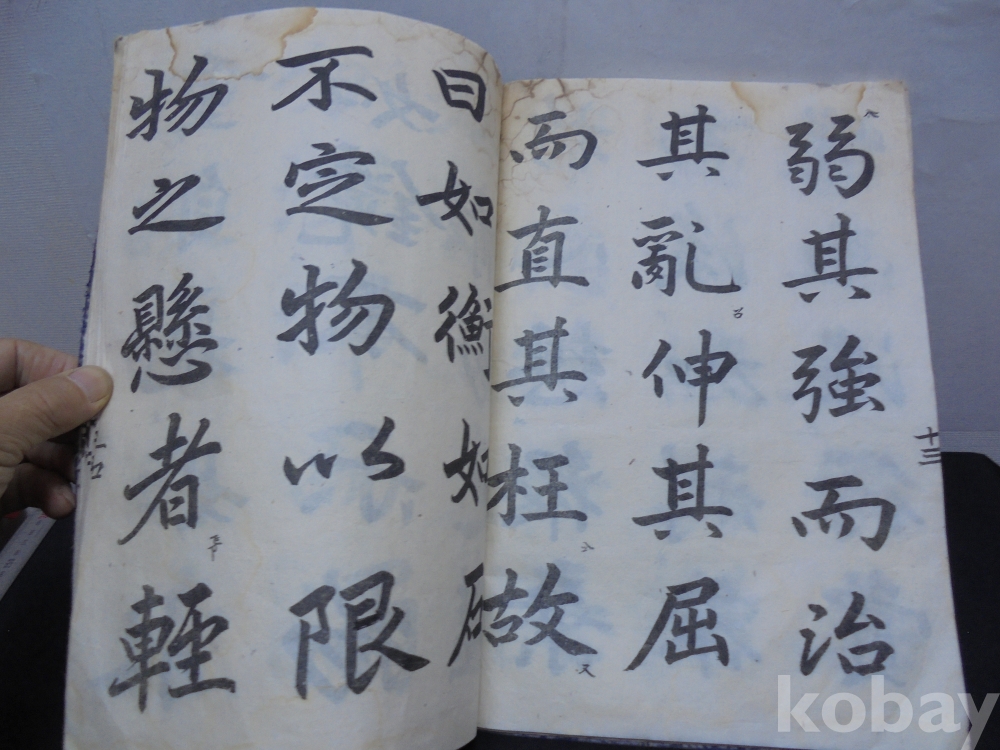 弱其強而治
其亂伸其屈
而直其枉故
曰如衡如石
不定物以限
物之懸者輕
十三
kobay